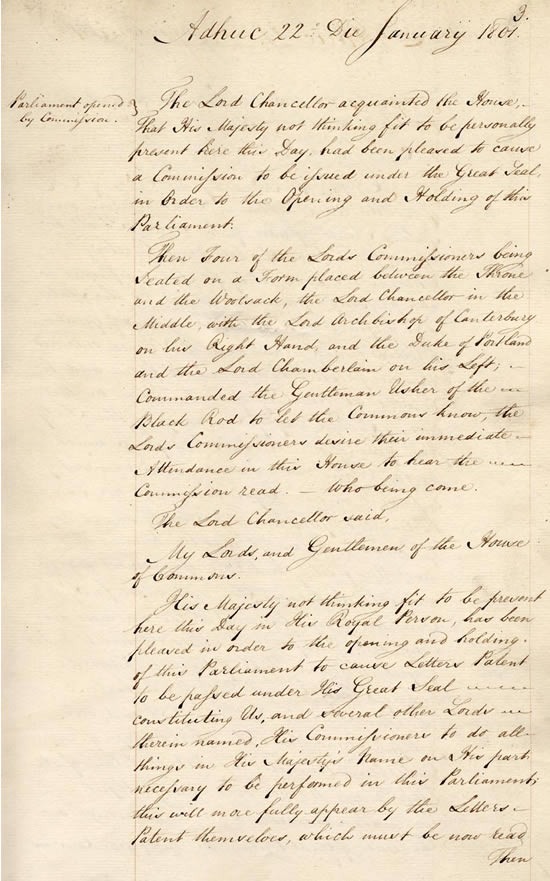 3.
Adhuc 22.° Die January 1801.
Parliament opened
by Commission.
The Lord Chancellor acquainted the House,
That His Majesty not thinking fit to be personally
present here this Day, had been pleased to cause
a Commission to be issued under the Great Seal,
in Order to the Opening and Holding of this
Parliament.
Then Four of the Lords Commissioners being
Seated on a Form placed between the Throne
and the Woolsack, the Lord Chancellor in the
Middle, with the Lord Archbishop of Canterbury
on his Right Hand, and the Duke of Portland
and the Lord Chamberlain on his Left; —
Commanded the Gentleman Usher of the —
Black Rod to let the Commons know, the
Lords Commissioners desire their immediate —
Attendance in this House to hear the —
Commission read. — Who being come.
The Lord Chancellor said,
My Lords, and Gentlemen of the House
of Commons.
His Majesty not thinking fit to be present
here this Day in His Royal Person, has been
pleased in order to the opening and holding
of this Parliament to cause Letters Patent
to be passed under His Great Seal —
constituting Us, and several other Lords —
therein named, His Commissioners to do all
things in His Majesty's Name on His part
necessary to be performed in this Parliament;
this will more fully appear by the Letters —
Patent themselves, which must be now read
Then